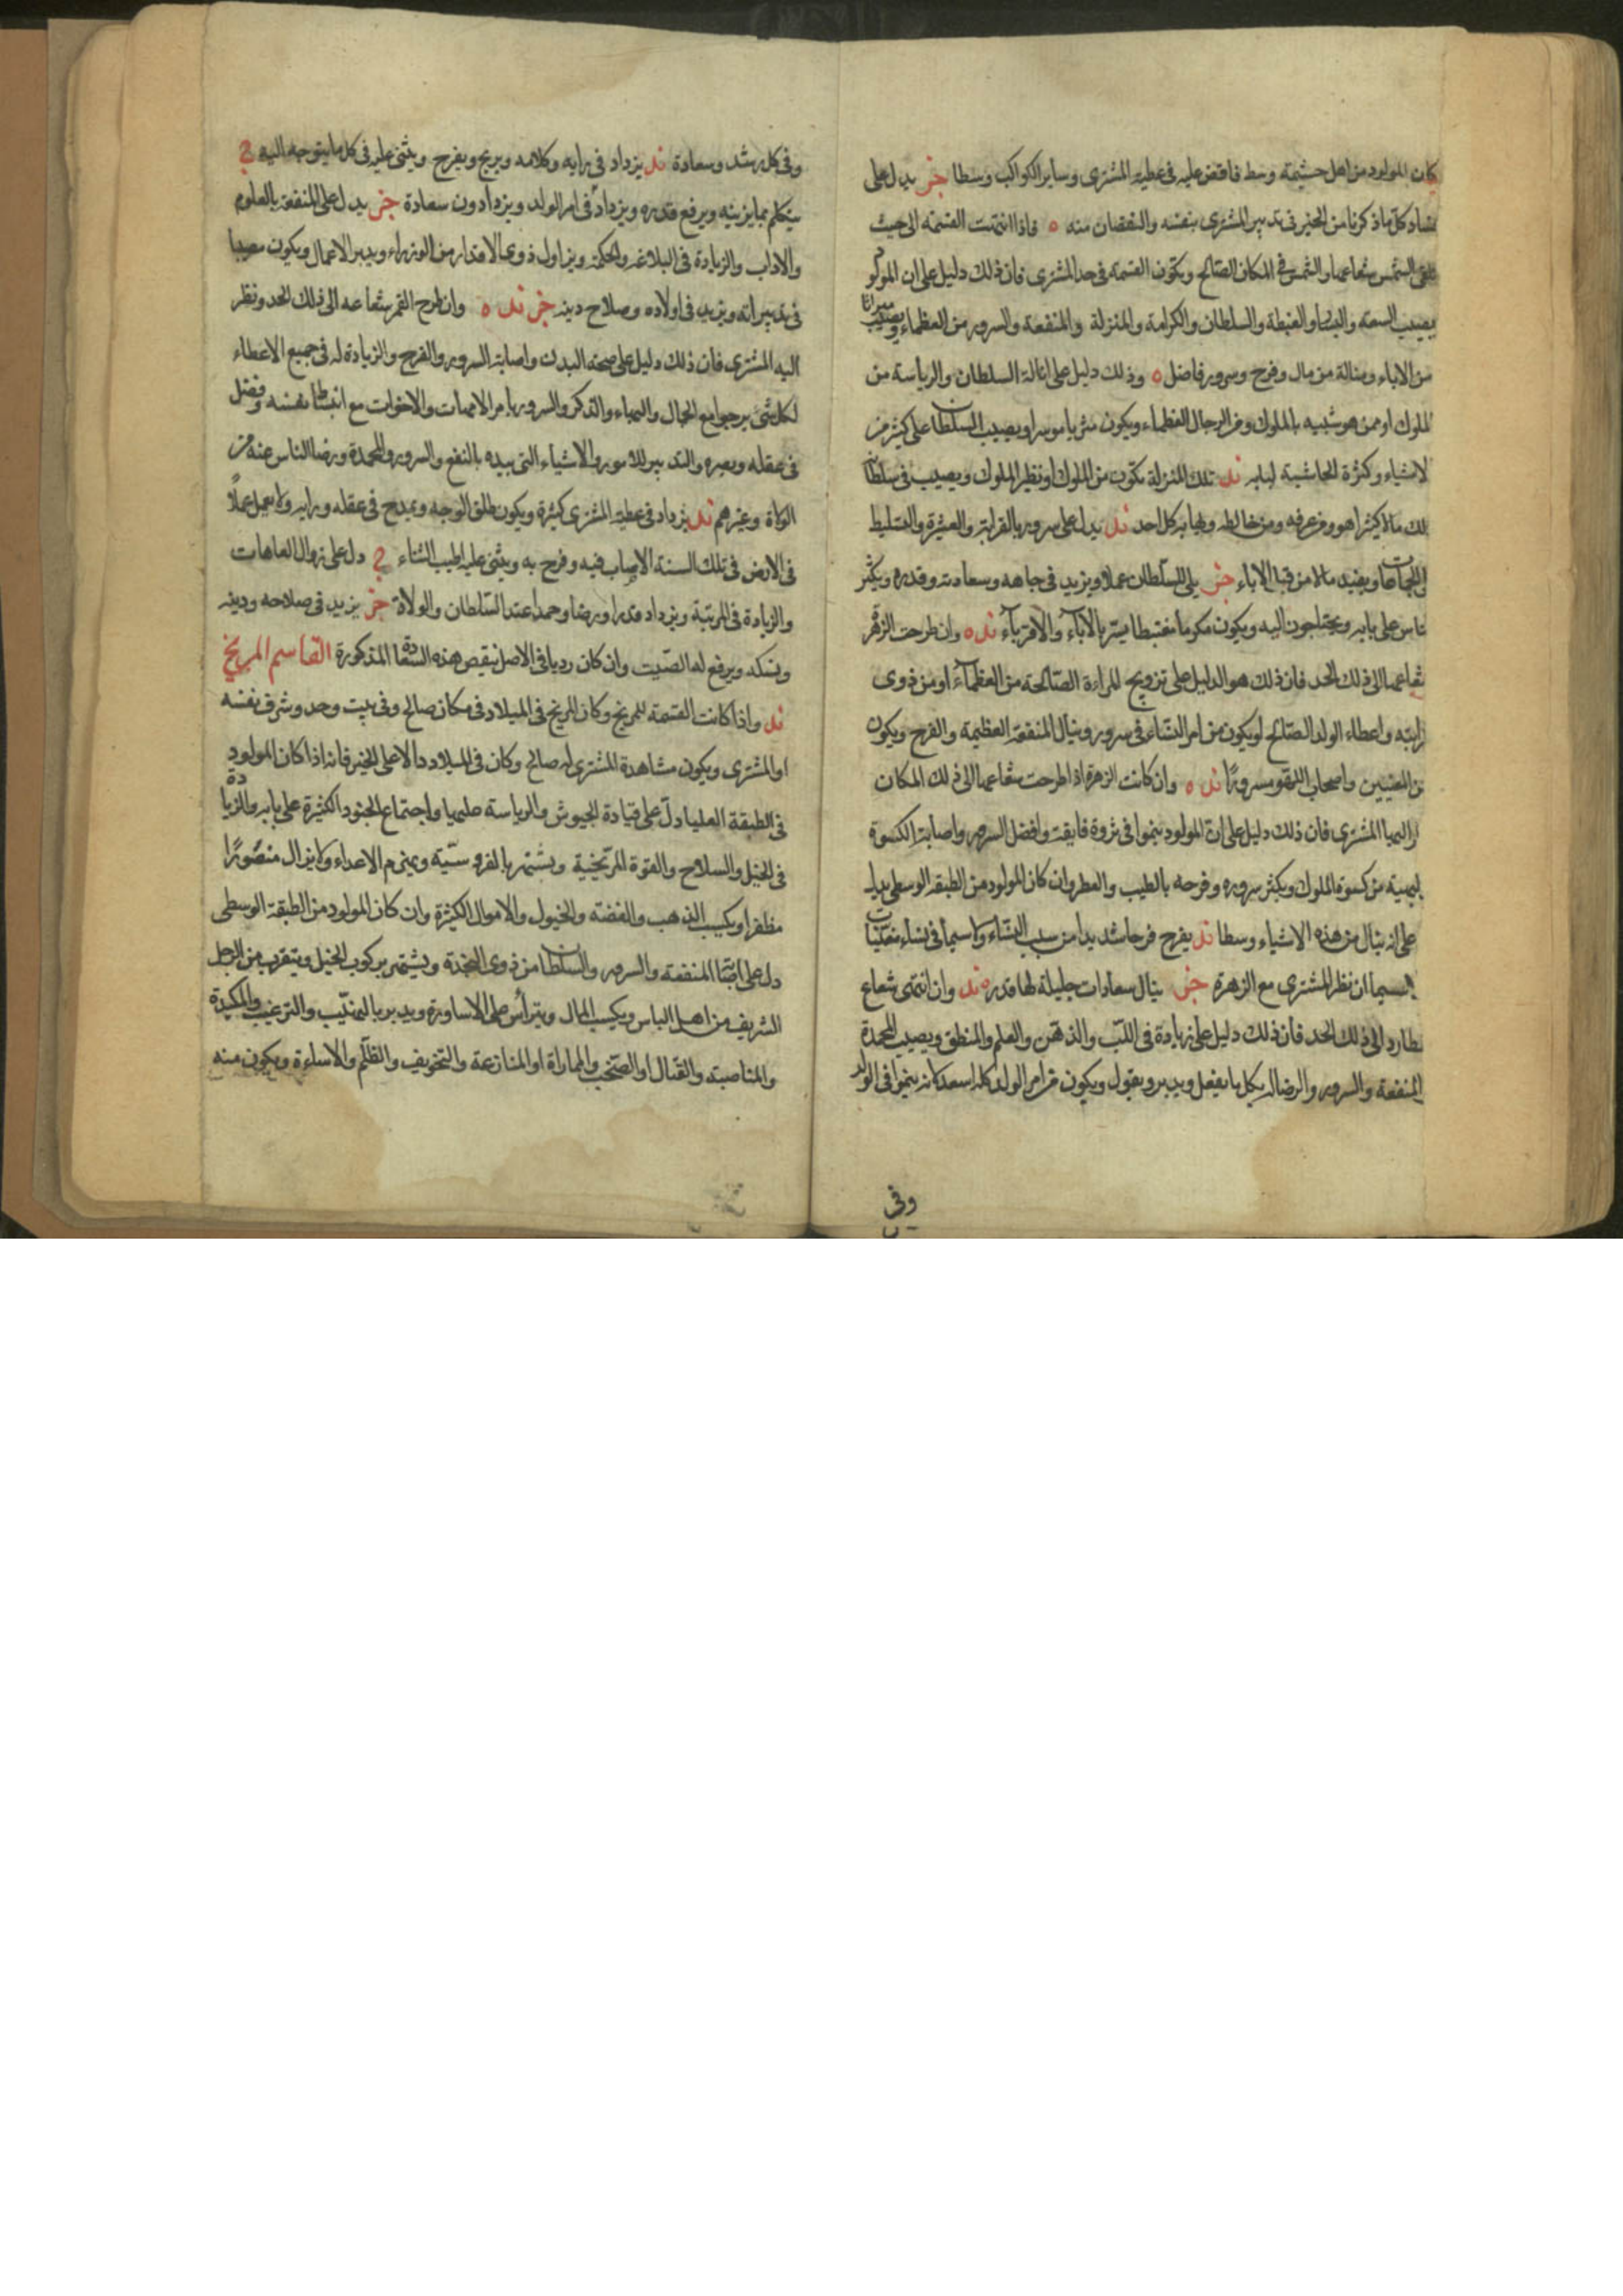 كان المولود من اهل حشيمته وسط فاقتض عليه فى عطية المشترى وساير الكواكب وسطا خرى يدل على
فساد كل ما ذكرنا من الخير فى تدبير المشترى بنفسه والنقصان منه ه فاذا انتهت القسمة الى حيث
تلقى الشمس شعاعها والشمس فى المكان الصالح ويكون القسمة فى حد المشترى فان ذلك دليل على ان المولود
يصيب السعة والغبطة والسلطان والكرامة والمنزلة والمنفعة والسرور من العظماء ويصيب ميراثا
من الاباء ومنالة من مال وفرح وسرور فاضل ه وذلك دليل على انالة السلطان والرياسة من
الملوك او ممن هو شبيه بالملوك ومن الرجال العظماء ويكون مثريا موسرا ويصيب السلطان على كثير من
الاشياء وكثرة الحاشية لبابه ند تلك المنزلة يكون من الملوك او نظير الملوك ويصيب فى سلطانه
ذلك مالا كثيرا هو ومن عرفه ومن خالطه ويهابه كل احد ند يدل على سروره بالقرابة والعشرة والتسليط
ويفيد مالا من قبل الاباء خرى يلى للسلطان عملا ويزيد فى جاهه وسعادته وقدره ويكثر
الناس على بابه ويحتاجون اليه ويكون مكرما مغتبطا يسر بالاباء والاقرباء ند ه وان طرحت الزهرة
شعاعها الى ذلك الحد فان ذلك هو الدليل على تزويج المراءة الصالحة من العظماء او من ذوى
قرابته واعطاء الولد الصالح او يكون من امر النساء فى سرور وينال المنفعة العظيمة والفرح ويكون
من المغنيين واصحاب اللهو مسرورا ند ه وان كانت الزهرة اذا طرحت شعاعها الى ذلك المكان
نظر اليها المشترى فان ذلك دليل على ان المولود ينموا فى ثروة فايقة وافضل السرور واصابة الكسوة
البهية من كسوة الملوك ويكثر سروره وفرحه بالطيب والعطر وان كان المولود من الطبقة الوسطى يدل
على انه ينال من هذه الاشياء وسطا ند يفرح فرحا شديدا من سبب النساء ولا سيما فى نساء مغنيات
لا سيما ان نظر المشترى مع الزهرة خرى ينال سعادات جليلة لها قدر ه ند وان انتهى شعاع
عطارد الى ذلك الحد فان ذلك دليل على زيادة فى اللب والذهن والعلم والمنطق ويصيب المحمدة
والمنفعة والسرور والرضا له بكل ما يفعل ويدبر ويقول ويكون من امر الولد كله اسعد كانه ينموا فى الولد
وفى
وفى كل رشد وسعادة ند يزداد فى رايه وكلامه ويربح ويفرح ويثنى عليه فى كل ما يتوجه اليه ح
يتكلم بما يزينه ويرفع قدره ويزداد فى امر الولد ويزدادون سعادة خرى يدل على المنفعة بالعلوم
والاداب والزيادة فى البلاغة والحكمة ويزاول ذوى الاقدار من الوزراء ويدبر الاعمال ويكون مصيبا
فى تدبيراته ويزيد فى اولاده وصلاح دينه خرى ند ه وان طرح القمر شعاعه الى ذلك الحد ونظر
اليه المشترى فان ذلك دليل على صحة البدن واصابة السرور والفرح والزيادة له فى جميع الاعطاء
لكل شئ يرجوا مع الجمال والبهاء والذكر والسرور بامر الامهات والاخوات مع انبساط نفسه وفضل
فى عقله وبصره والتدبير للامور والاشياء التى بيده بالنفع والسرور والمحمدة ورضا الناس عنه من
الولاة وغيرهم ند يزداد فى عطية المشترى كثيرة ويكون طلق الوجه ويمدح فى عقله ورايه ولا يعمل عملا
فى الارض فى تلك السنة الا صاب فيه وفرح به ويثنى عليه اطيب الثناء ح دل على زوال العاهات
والزيادة فى المرتبة ويزداد قدرا ورضا وحمدا عند السلطان والولاة خرى يزيد فى صلاحه ودينه
ونسكه ويرفع له الصيت وان كان رديا فى الاصل نيقص هذه السعادة المذكورة القاسم المريخ
ند واذا كانت القسمة للمريخ وكان المريخ فى الميلاد فى مكان صالح وفى بيت وحد وشرف نفسه
او المشترى ويكون مشاهدة المشترى له صالح وكان فى الميلاد دالا على الخير فانه اذا كان المولود
فى الطبقة العليا دل على قيادة الجيوش والرياسة عليها واجتماع الجنود الكثيرة على بابه والزيادة
فى الخيل والسلاح والقوة المريخية ويشتهر بالفروسية ويهزم الاعداء ولا يزال منصورا
مظفرا ويكسب الذهب والفضة والخيول والاموال الكثيرة وان كان المولود من الطبقة الوسطى
دل على اصابة المنفعة والسرور والسلطان من ذوى النجدة ويشتهر بركوب الخيل ويتقرب من الرجل
الشريف من اهل الباس ويكسب المال ويتراس على الاساورة ويدبر بالتهيب والترغيب والمكيدة
والمناصبة والقتال او الصخب والمماراة او المنازعة والتخويف والظلم والاساءة ويكون منه